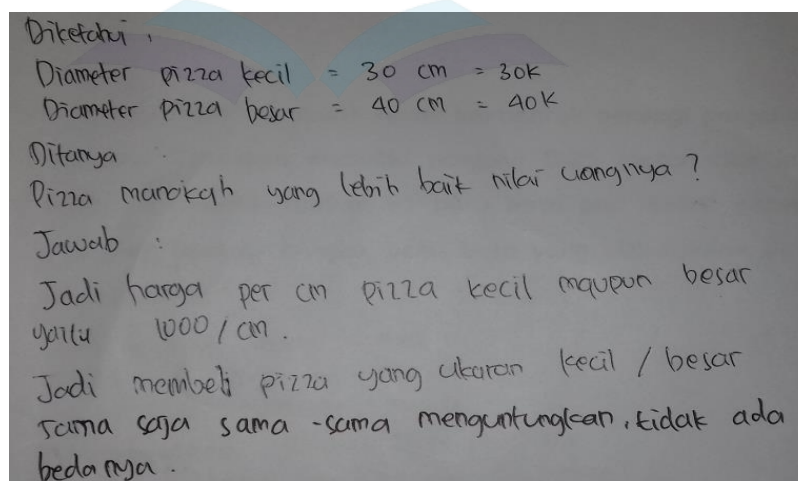 Diketahui,
Diameter pizza kecil = 30 cm = 30k
Diameter pizza besar = 40 cm = 40k
Ditanya
Pizza manakah yang lebih baik nilai uangnya?
Jawab :
Jadi harga per cm pizza kecil maupun besar
yaitu 1000/cm.
Jadi membeli pizza yang ukuran kecil / besar
sama saja sama-sama menguntungkan, tidak ada
bedanya.